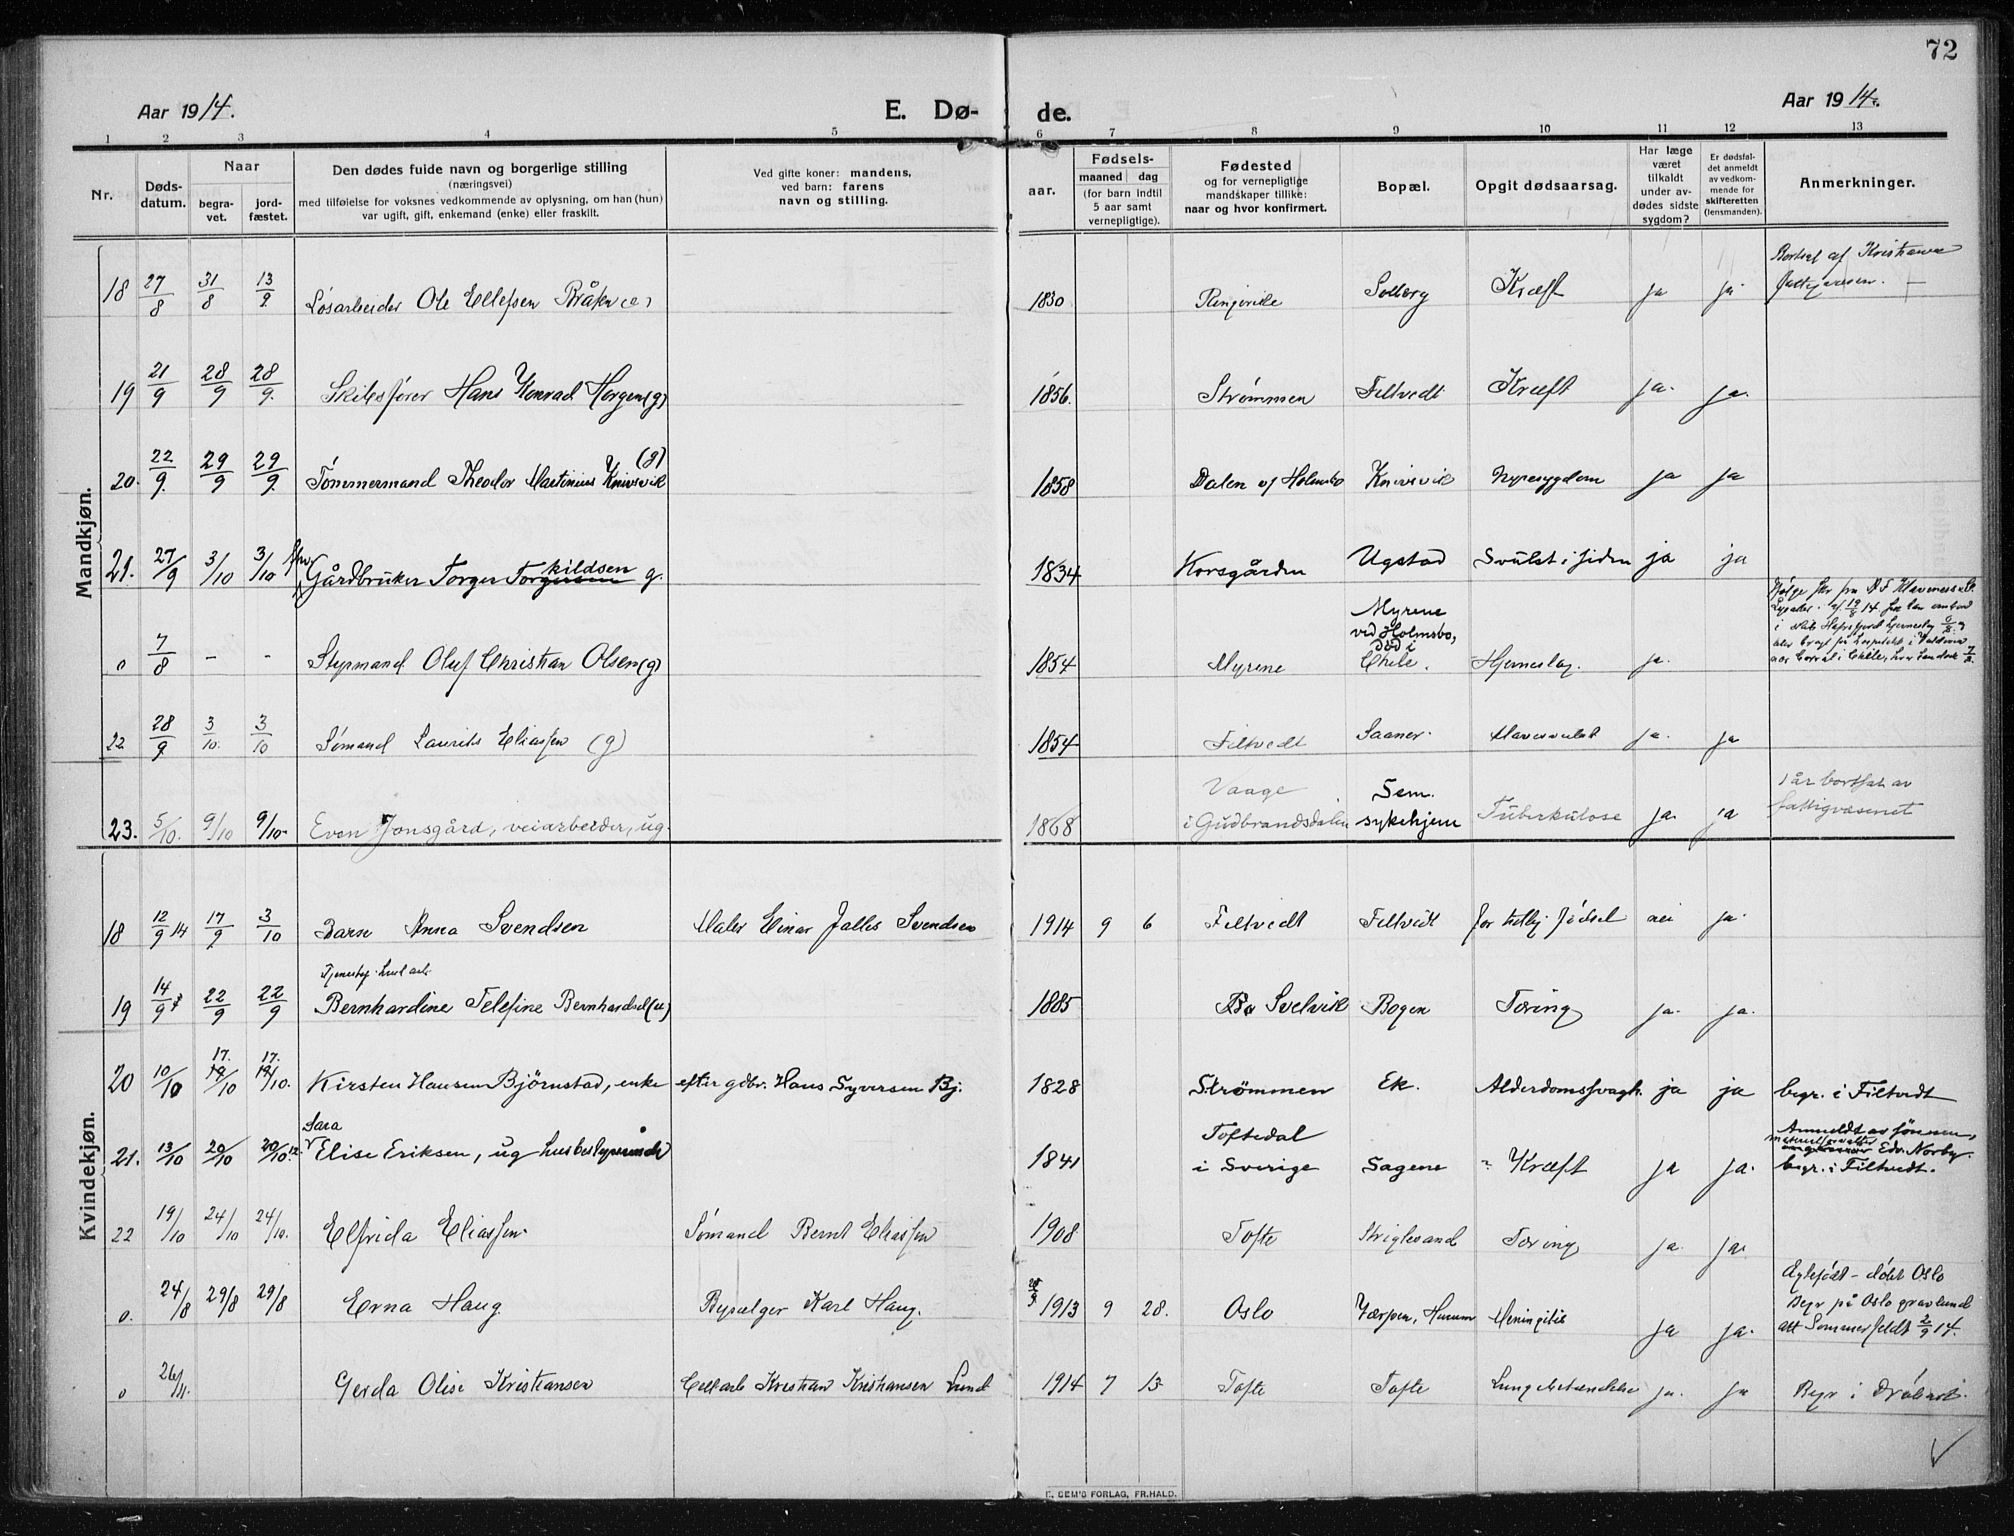 72
Aar 1914.
E. Dø-
de.
Aar 1914.
1 2 3 4 5 6 7 8 9 10 11 12 13
Nr.
Døds-
datum.
Naar
begra-
vet.
jord-
fæstet.
Den dødes fulde navn og borgerlige stilling
(næringsvei)
med tilføielse for voksnes vedkommende av oplysning, om han (hun)
var ugift, gift, enkemand (enke) eller fraskilt.
Ved gifte koner: mandens,
ved barn: farens
navn og stilling.
aar.
Fødsels-
maaned dag
(for barn indtil
5 aar samt
vernepligtige).
Fødested
og for vernepligtige
mandskaper tillike:
naar og hvor konfirmert.
Bopæl.
Opgit dødsaarsag.
Har læge
været
tilkaldt
under av-
dødes sidste
sygdom?
Er dødsfal-
det anmeldt
av vedkom-
mende for
skifteretten
(lensmanden).
Anmerkninger.
Mandkjøn.
18 27/8 31/8 13/9 Løsarbeider Ole Ellefsen Bråten (e) 1830 Ringerike Solberg Kræft ja ja. Bortsat af Kristiania
fattigvæsen.
19 21/9 28/9 28/9. Skibsfører Hans Konrad Horgen (g) 1856. Strømmen Filtvedt Kræft ja. ja.
20. 22/9. 29/9 29/9. Tømmermand Theodor Martinius Knivsvik (g) 1858 Dalen v/ Holmsbo Knivsvik Nyresygdom ja ja
21. 27/9 3/10 3/10 Gårdbruker Torger Torgersen g.
kildsen
1834 Korsgården Ugstad Svulst i siden ja ja
0 7/8 - - Styrmand Oluf Christian Olsen (g) 1854 Myrene Myrene
ved Holmsbo,
død i
Chile. Hjerneslag. ja.
22 28/9 3/10. 3/10 Sømand Laurits Eliassen (g) 1854 Filtvedt Saaner. Mavesvulst ja. ja
23. 5/10. 9/10 9/10. Even Jonsgård, veiarbeider, ug. 1868 Vaage
i Gudbrandsdalen Sem.
sykehjem Tuberkulose ja. ja 1 år bortsat av
fattigvæsenet
Kvindekjøn.
18 12/9 14 17/9 3/10 Barn Anna Svendsen Maler Einar Jalles Svendsen 1914 9 6 Filtvedt Filtvedt for tidlig fødsel nei ja.
19 14/9 22/9 22/9 Bernhardine Telefine Bernhardsd (u) 1885 Bo Svelvik Bogen Tæring ja. ja.
20 10/10 17. /10 17. /10. Kirsten Hansen Bjørnstad, enke efter gdbr. Hans Syversen Bj. 1828 Strømmen Ek. Alderdomssvagh. ja ja begr. i Filtvedt
Sara
21. 13/10 20/10 20/10 Elise Eriksen, ug husbestyrerinde 1841 Toftedal
i Sverige Sagene Kræft ja ja. Anmeldt av sønnen,
materialforvalter Edv. Norby.
begr. i Filtvedt.
22 19/10 24/10 24/10. Elfrida Eliassen. Sømand Bernt Eliassen 1908 Tofte Striglesand Tæring ja. ja.
0. 24/8 29/8 29/8 Erna Haug Bysælger Karl Haug. 1913 9 28. Oslo Værpen, Hurum Meningitis ja ja. Ægtefødt - døbt Oslo
Begr på Oslo gravlund
att Sommerfeldt 2/9 14.
0 26/11. Gerda Olise Kristiansen Cellarb Kristian Kristiansen Lund 1914 7 13 Tofte Tofte Lungebetændelse ja. ja Begr i Drøbak.
E. SEM'S FORLAG, FR.HALD.